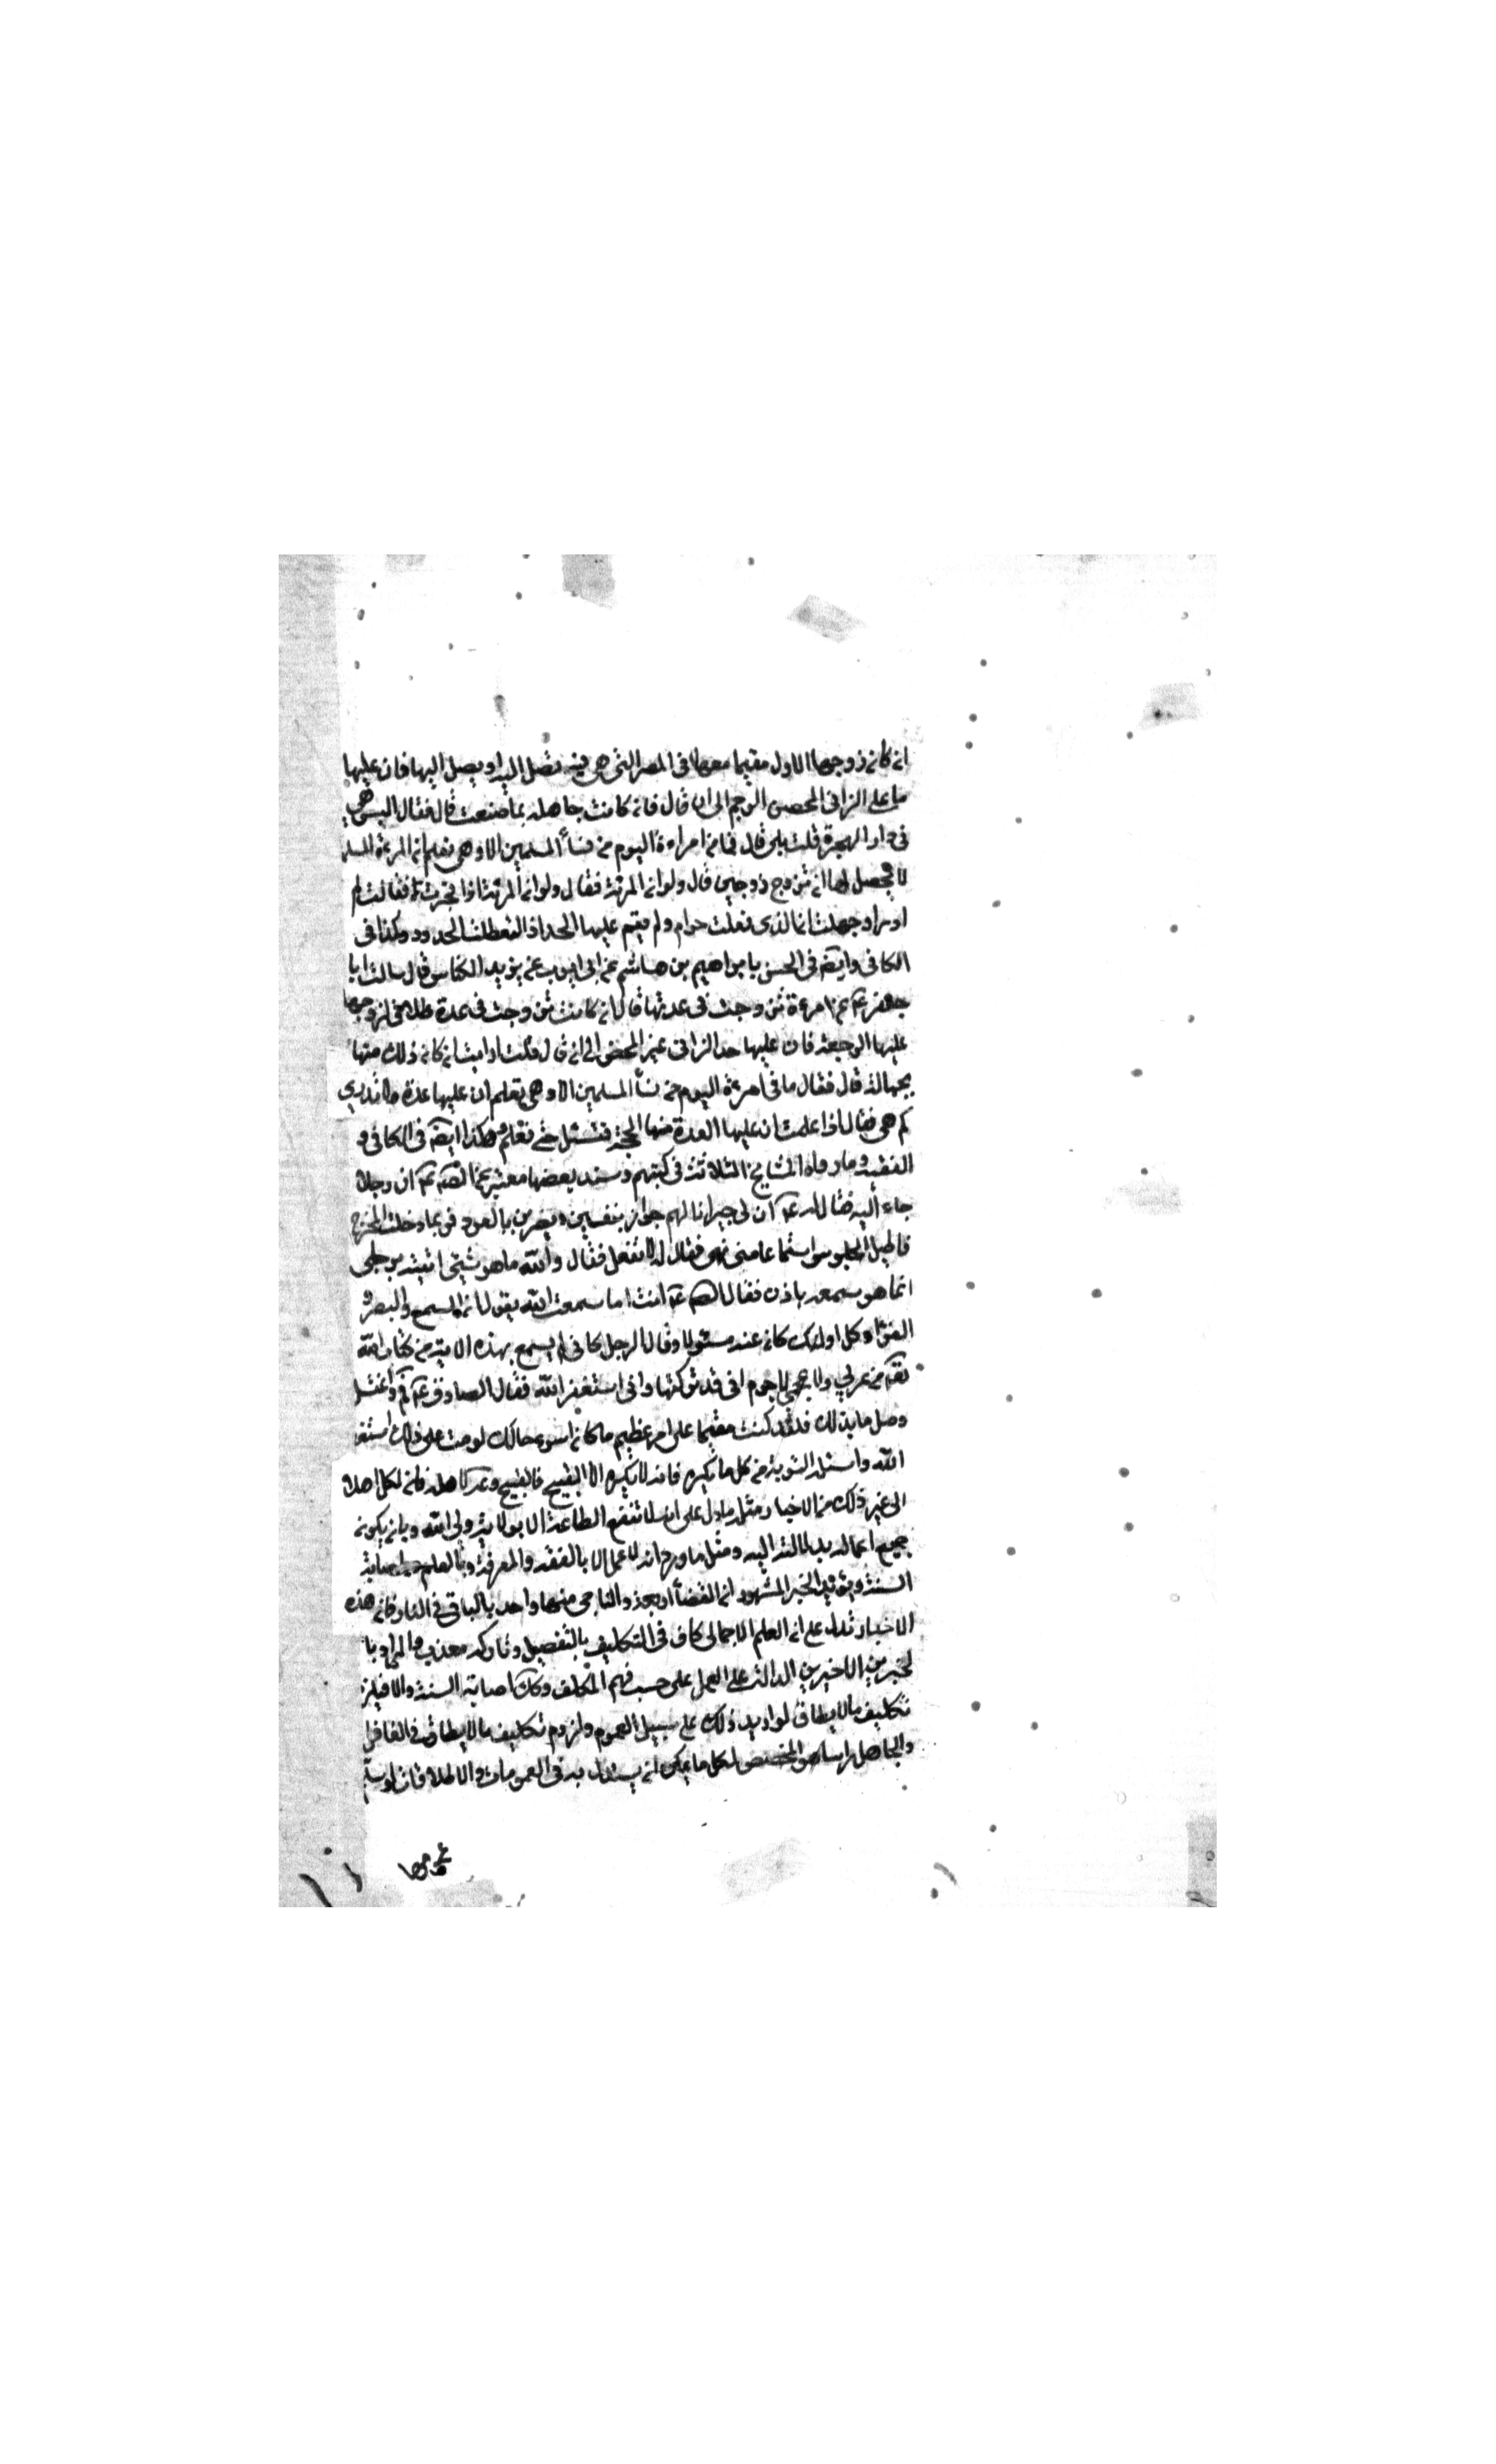 ان كان زوجها الاول مقيما معها فى المصر التى هى فيه تصل اليه او يصل اليها فان عليها
ما على الزانى المحصن الرجم الى ان قال فان كانت جاهلة بما صنعت قال فقال اليس هى
فى دار الهجرة قلت بلى قال فما من امراءة اليوم من نسأ المسلمين الا و هى تعلم ان المرءة المسلمة
لا يحصل لها ان تتزوج زوجين قال ولو ان المرئة فقال ولو ان المرئة اذا فجرت فقالت لم
ادر او جهلت ان الذى فعلت حرام ولم يقم عليها الحد اذا لتعطلت الحدود وكذا فى
الكافى وايضا فى الحسن بابراهيم بن هاشم عن ابى ايوب عن يزيد الكناسى قال سالت ابا
جعفر عم عن امرءة تزوجت فى عدتها قال ان كانت تزوجت فى عدة طلاق لزوجها
عليها الرجعة فان عليها حد الزانى غير المحصن الى ان قال قلت ارايت ان كان ذلك منها
بجهالة قال فقال ما فى امرءة اليوم من نسأ المسلمين الا و هى تعلم ان عليها عدة ولا تدرى
كم هى فقال اذا علمت ان عليها العدة منها الحجة فتسئل حتى تعلم وهكذا ايضا فى الكافى و
الفقيه وما رواه المشايخ الثلاثة فى كتبهم وسند بعضها معتبر عن الصم عم ان رجلا
جاء اليه فقال له عم ان لى جيرانا لهم جوار يتغنين ويضربن بالعود فربما دخلت المخرج
فاطيل الجلوس استماعا منى لهن فقال له لا تفعل فقال والله ما هو شيئى اتيته برجلى
انما هو سمعه باذن فقال الصم عم انت اما سمعت الله يقول ان السمع والبصر و
الفؤاد كل اولئك كان عنه مسئولا وقال الرجل كانى لم يسمع بهذه الاية من كتاب الله
تعم من عربي ولا عجمي لا جرم انى قد تركتها وانى استغفر الله فقال الصادق عم قم واغتسل
وصل ما بدالك فلقد كنت مقيما على امر عظيم ما كان اسوء حالك لو مت على ذلك استغفر
الله واسئله التوبة من كل ما يكره فانه لا يكره الا القبيح فالقبيح دعه لاهله فان لكل اهلا
الى غير ذلك من الاخبار مثل ما دل على ان لا تنفع الطاعة الا بولاية ولى الله وبان يكون
جميع اعماله بدلالته اليه ومثل ما ورد انه لا عمل الا بالفقه والمعرفة وبالعلم باصابة
السنة ويؤيده الخبر المشهور ان القضأ اربعة والناجى منها واحد والباقى فى النار فان هذه
الاخبار تدل على ان العلم الاجمالى كاف فى التكليف بالتفصيل وتاركه معذب والمراد با
لخبرين الاخيرين الدالة على العمل على حسب فهم المكلف وكك اصابة السنة والا فيلزم
تكليف ما لا يطاق لو اريد ذلك على سبيل العموم ولزوم تكليف ما لا يطاق فى الغافل
والجاهل راسا هو المخصص لكل ما يمكن ان يستدل به فى العمومات والاطلاقات لو سلم